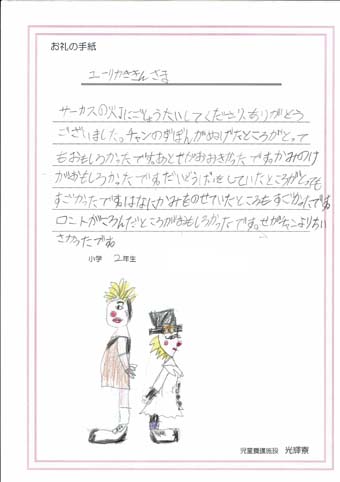 お礼の手紙
ユーリカききんさま
サーカスの火丁にごしょうたいしてくださり、ありがとう
ございました。チャンのずぼんがぬげたところがとって
もおもしろかったですあとせがおおきかったですかみのけ
がおもしろかったですだいどうげいをしていたところがとっても
すごかったですはなにかみものせていたところもすごかったです
ロニトがころんだところがおもしろかったです。せがチャンよりちい
さかったです
小学 2年生
児童養護施設 光輝寮